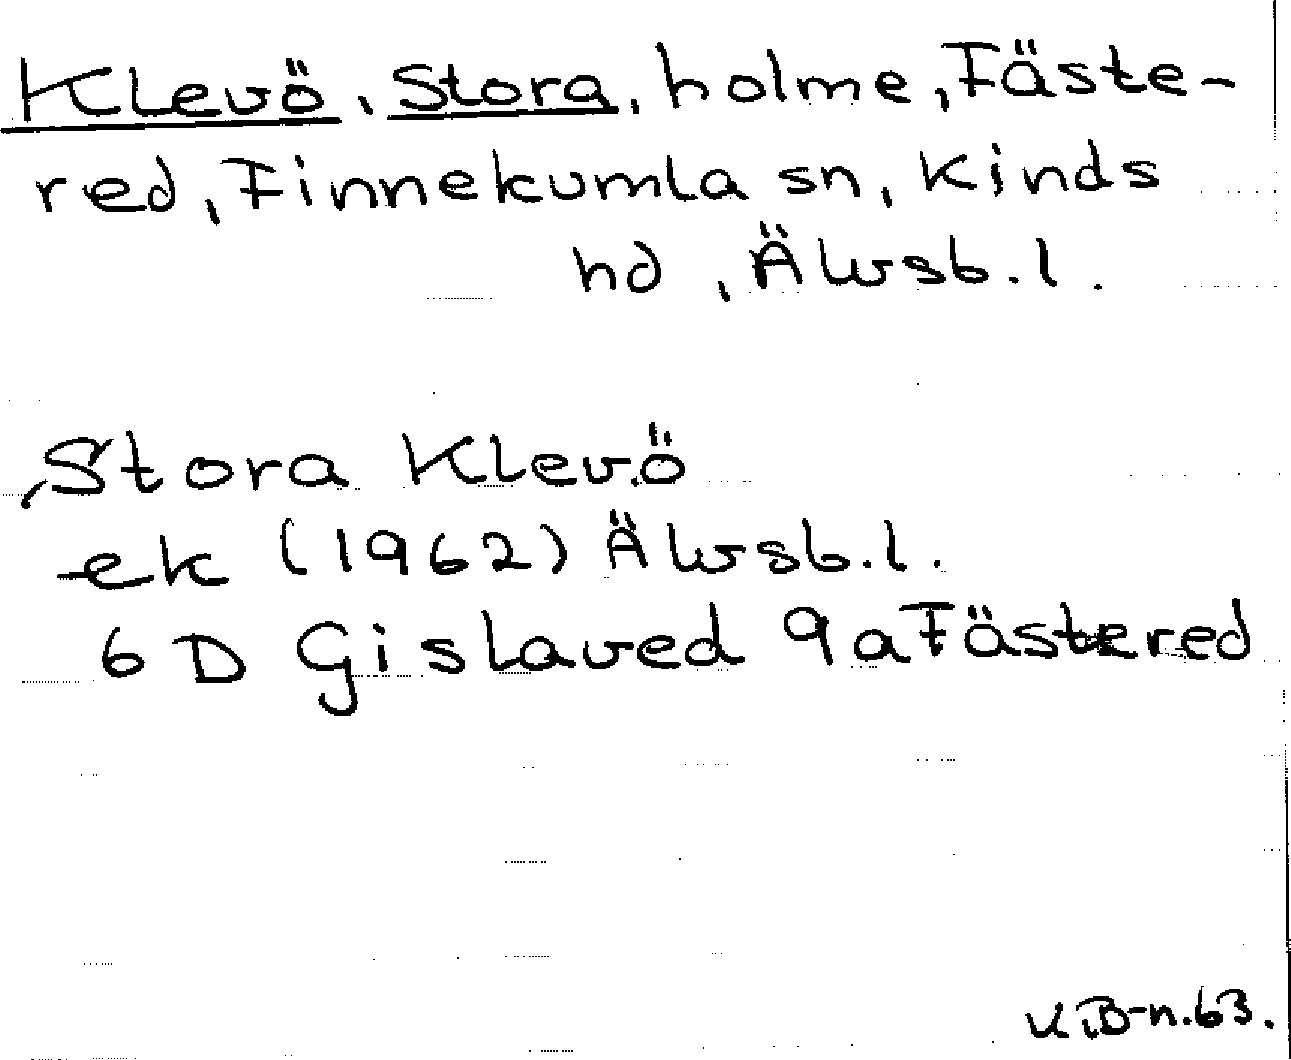 Klevö, Stora, holme, Fäste-
red, Finnekumla sn, Kinds
hd, Älvsb.l.
Stora Klevö
ek (1962) Älvsb.l.
6D Gislaved 9a Fästered
K.B-n.63.